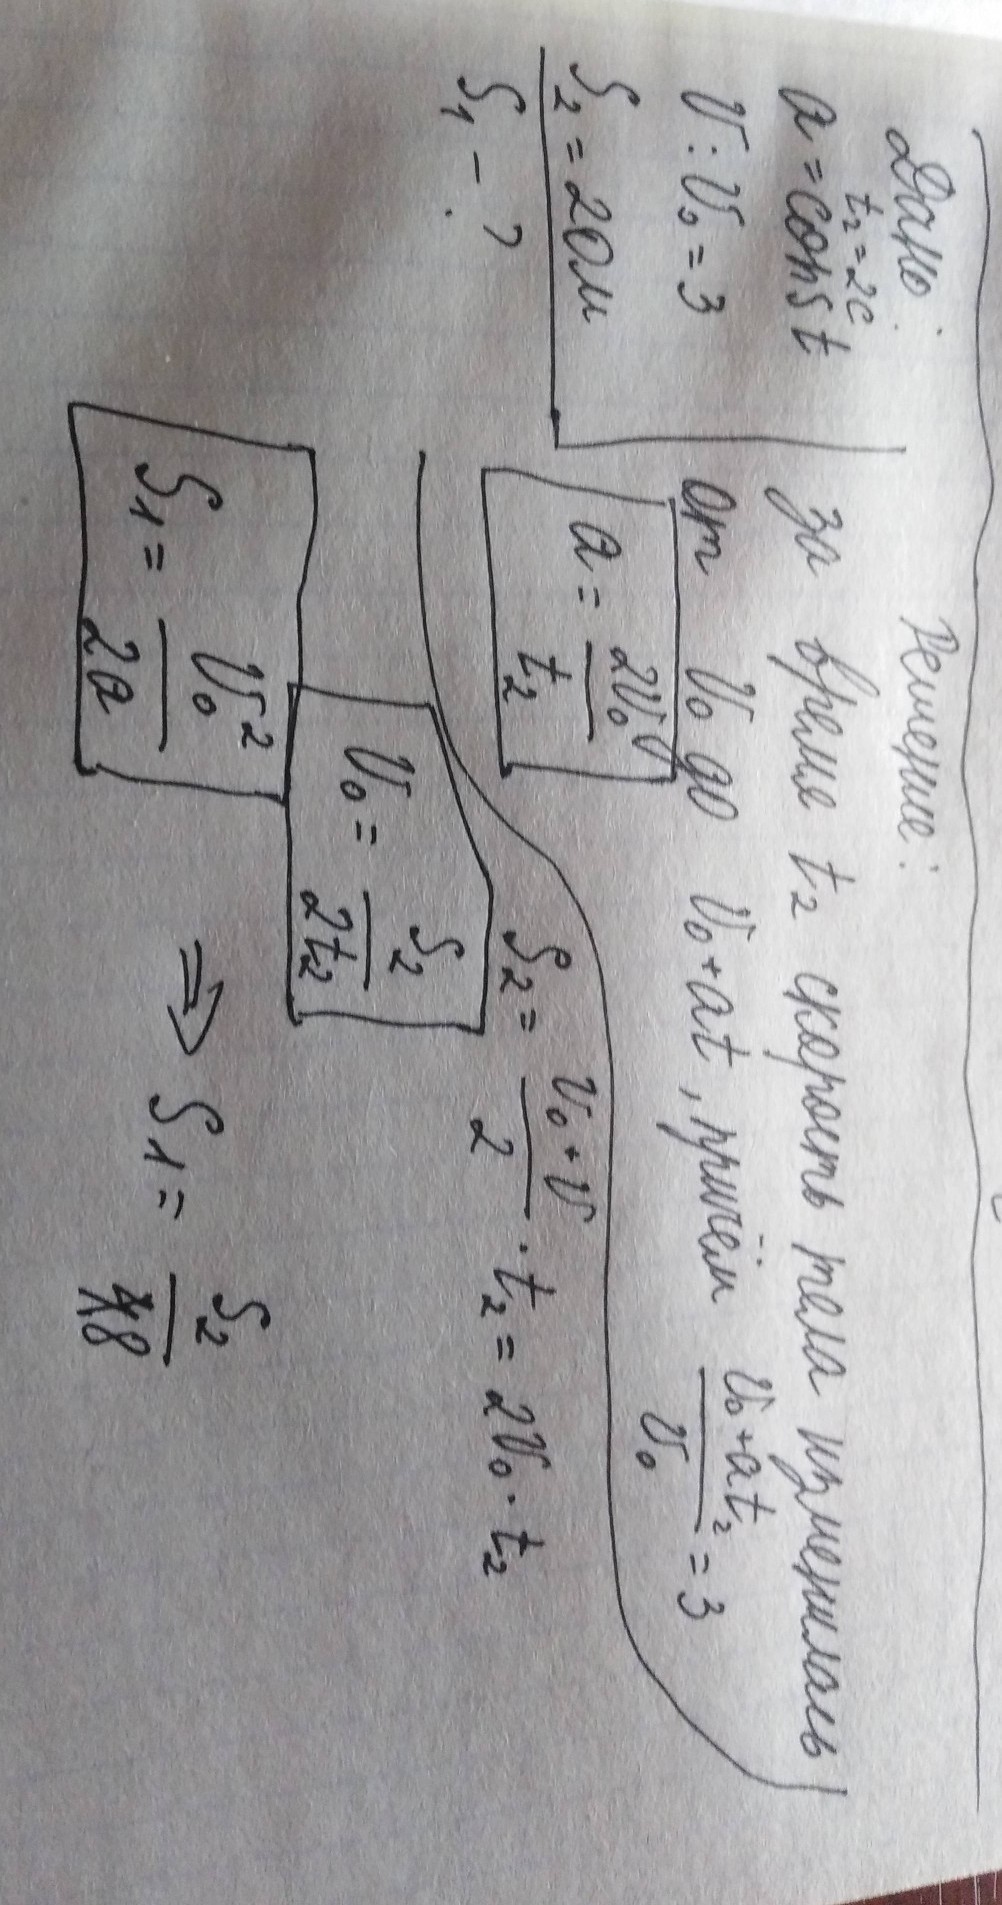 Дано:
t₂ = 2с
a = const
V : V₀ = 3
S₂ = 20м
S₁ - ?
Решение:
За время t₂ скорость тела изменилась
от V₀ до V₀+at, причём (V₀+at₂)/V₀ = 3
a = 2V₀/t₂
S₂ = (V₀+V)/2 · t₂ = 2V₀ · t₂
V₀ = S₂/2t₂
S₁ = V₀²/2a
⇒ S₁ = S₂/8